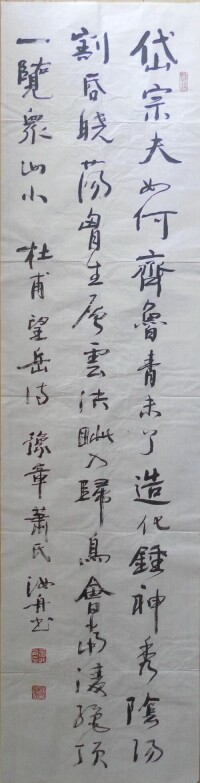 岱宗夫如何齊魯青未了造化鍾神秀陰陽
割昏曉蕩胷生層雲決眦入歸鳥會當凌絕頂
一覽衆山小 杜甫望岳詩 豫章蕭氏汝舟書